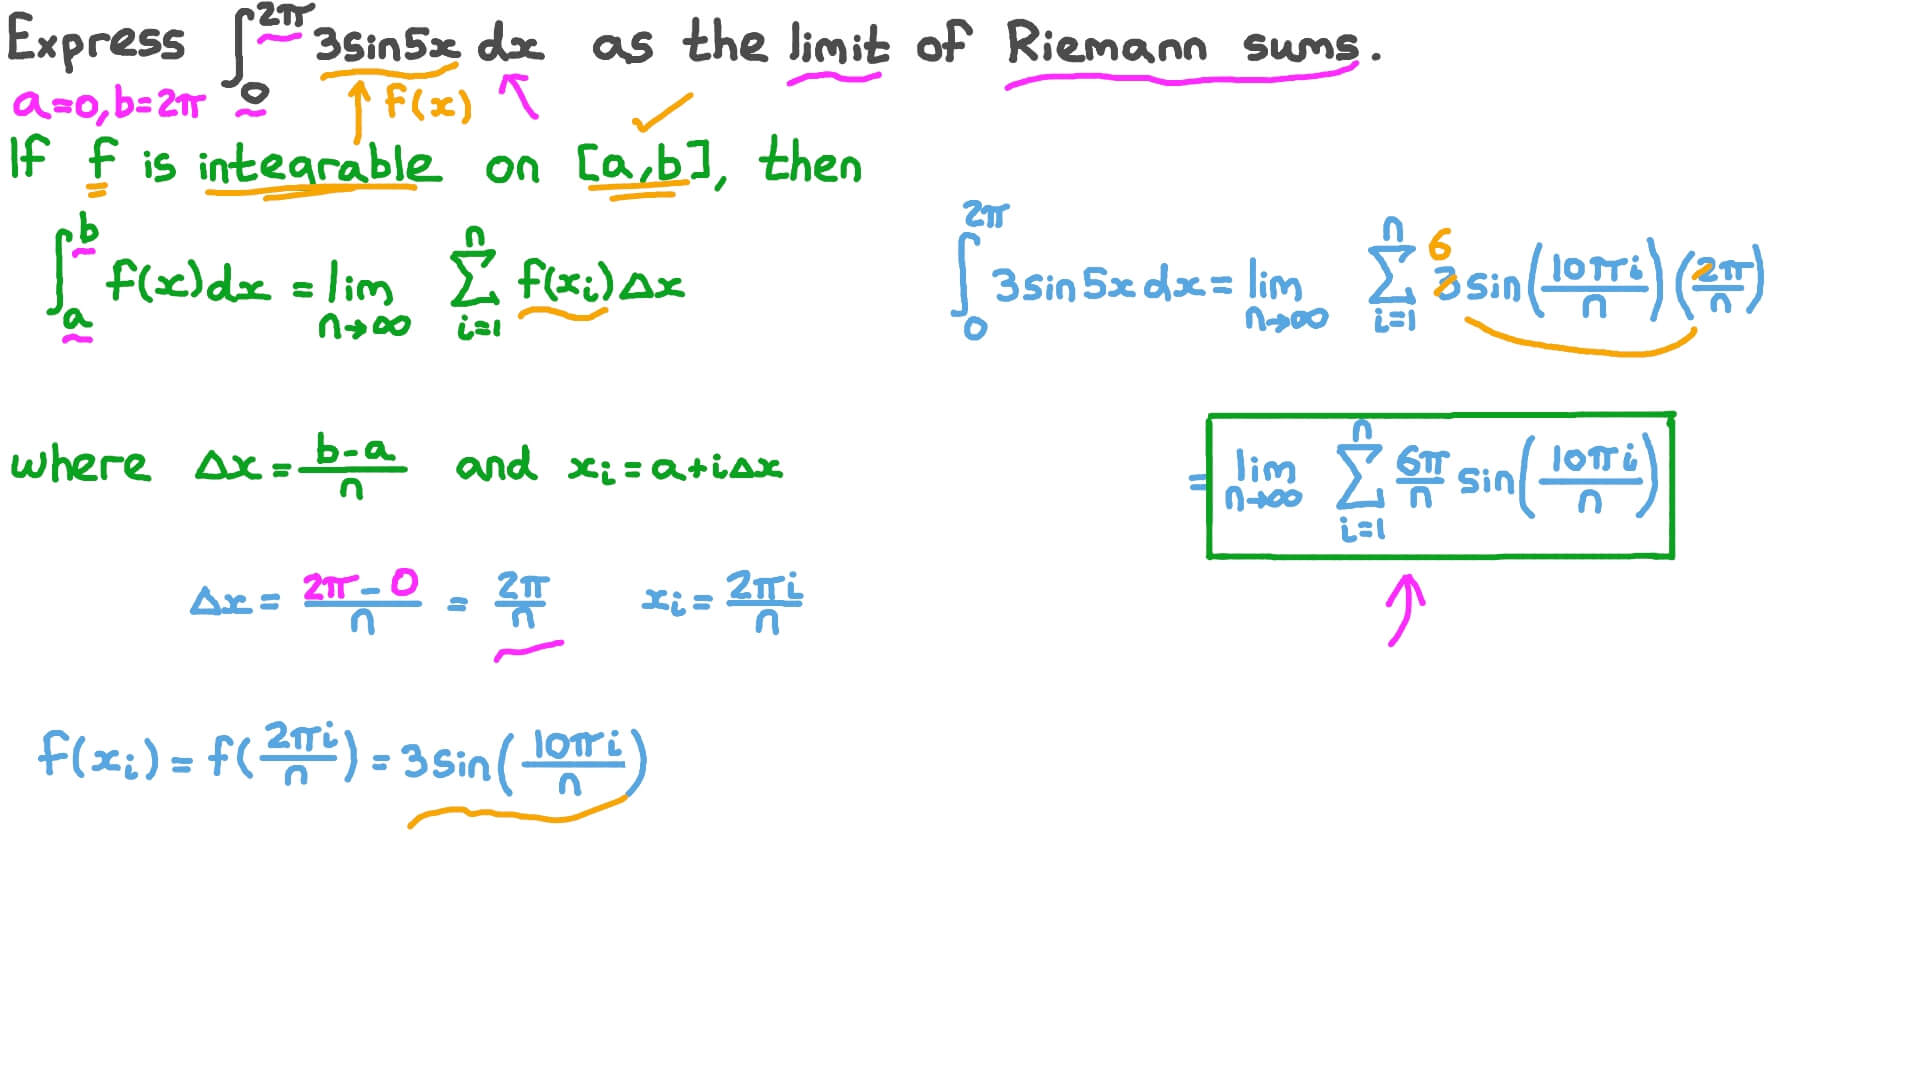 Express ∫₀^2π 3sin5x dx as the limit of Riemann sums.
a=0, b=2π f(x)
If f is integrable on [a,b], then
∫ₐ^b f(x)dx = lim n→∞ Σ i=1 n f(xᵢ)Δx
where Δx = (b-a)/n and xᵢ = a+iΔx
Δx = (2π-0)/n = 2π/n xᵢ = 2πi/n
f(xᵢ) = f(2πi/n) = 3sin(10πi/n)
∫₀^2π 3sin5x dx = lim n→∞ Σ i=1 n 6 3sin(10πi/n)(2π/n)
= lim n→∞ Σ i=1 n 6π/n sin(10πi/n)